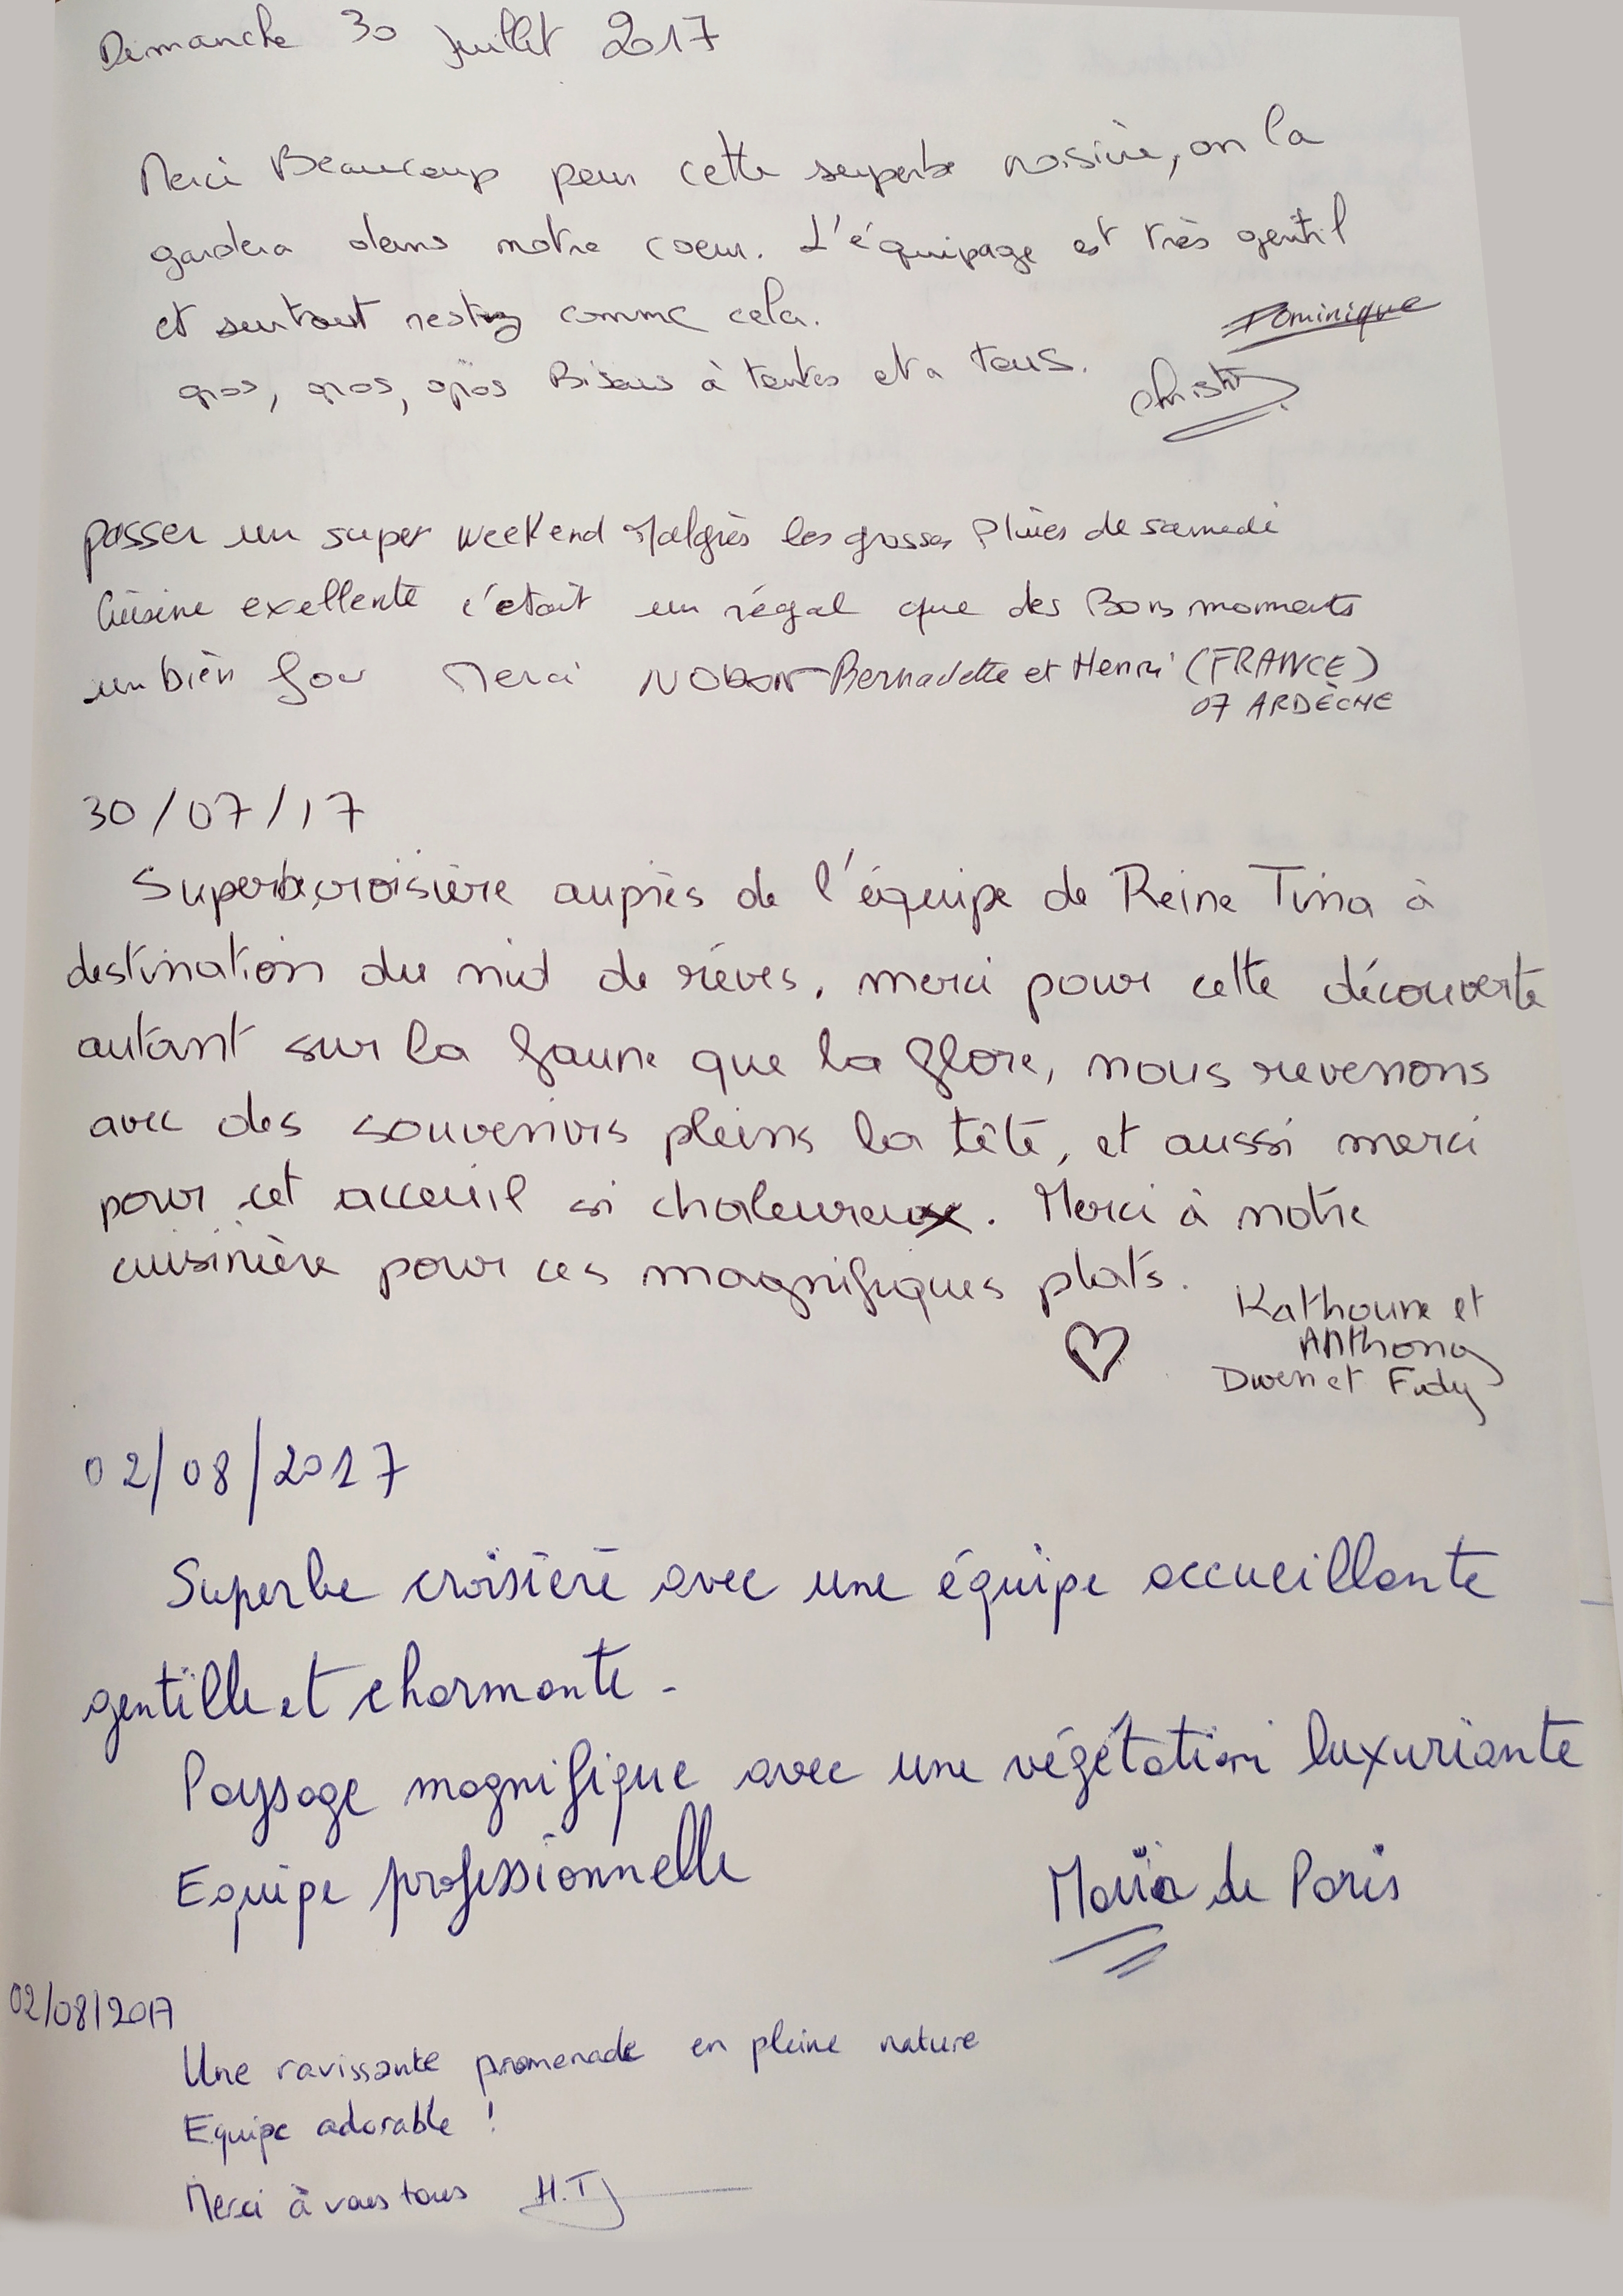 Dimanche 30 juillet 2017
Merci Beaucoup pour cette superbe croisière, on la
gardera dans notre coeur. L'équipage est très gentil
et surtout restez comme cela.
Dominique
gros, gros, gros Bisous à toutes et a tous.
Christy
passer un super weekend Malgrès les grosses Pluies de samedi
Cuisine exellente c'était un régal que des Bons moments
un bien fou Merci Bernadette et Henri (FRANCE)
07 ARDÈCHE
30/07/17
Superbe croisière auprès de l'équipe de Reine Tina à
destination du nid de rêves, merci pour cette découverte
autant sur la faune que la flore, nous revenons
avec des souvenirs pleins la tête, et aussi merci
pour cet acceuil si chaleureux. Merci à notre
cuisinière pour ces magnifiques plats.
Kathoune et
Anthony
Dwen et
02/08/2017
Superbe croisière avec une équipe accueillante
gentille et charmante -
Paysage magnifique avec une végétation luxuriante
Equipe professionnelle
Maria de Paris
02/08/2017
Une ravissante promenade en pleine nature
Equipe adorable !
Merci à vous tous H.T